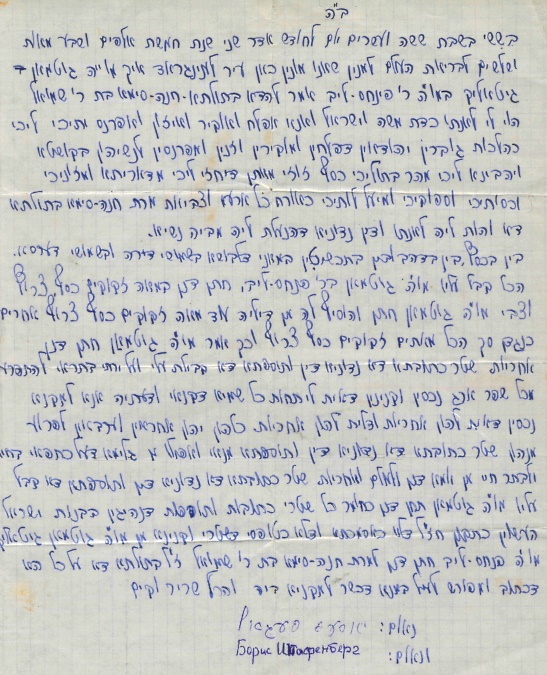 ב"ה
בששי בשבת ששה ועשרים יום לחודש אדר שני שנת חמשת אלפים ושבע מאות
ושלשים לבריאת העולם למנין שאנו מונין כאן עיר לענינגראד איך גוטמאן
גיטאליק במו"ה ר' פינחס-ליב אמר להדא בתולתא-חנה-סימא בת ר' שמואל
הוי לי לאנתו כדת משה וישראל ואנא אפלח ואוקיר ואיזון ואפרנס יתיכי ליכי
כהלכות גוברין יהודאין דפלחין ומוקירין וזנין ומפרנסין לנשיהון בקושטא
ויהבינא ליכי מהר בתוליכי כסף זוזי מאתן דיחזי ליכי מדאוריתא ומזוניכי
וכסותיכי וסיפוקיכי ומיעל לותיכי כאורח כל ארעא וצביאת מרת חנה-סימא בתולתא
דא והות ליה לאנתו ודין נדוניא דהנעלת ליה מבי נשיא.
בין בכסף בין בדהב ובין בתכשיטין במאני דלבושא בשמושי דירה ובשמושי דערסא.
הכל קבל עליו מו"ה גוטמאן בר פנחס-ליב חתן דנן במאה זקוקים כסף צרוף
וצבי מו"ה גוטמאן חתן והוסיף לה מן דיליה עוד מאה זקוקים כסף צרוף אחרים
כנגדם סך הכל מאתים זקוקים כסף צרוף וכך אמר מו"ה גוטמאן חתן דנן
אחריות שטר כתובתא דא נדוניא דין ותוספתא דא קבלית עלי ועל ירתי בתראי להתפרע
מכל שפר ארג נכסין וקנינין דאית לי תחות כל שמיא דקנאי ודעתיד אנא למקנא
נכסין דאית להון אחריות ודלית להון אחריות כלהון יהון אחראין וערבאין לפרוע
מנהון שטר כתובתא דא נדוניא דין ותוספתא מנאי ואפילו מן גלימא דעל כתפאי בחיי
ולבתר חיי מן יומא דנן ולעולם ואחריות שטר כתובתא דא נדוניא דין ותוספתא דא קבל
עליו מו"ה גוטמאן חתן דנן כחומר כל שטרי כתובות ותוספות דנהגין בבנות ישראל
העשוין כתקון חז"ל דלא כאסמכתא ודלא כטופסי דשטרי וקנינא מן מו"ה גוטמאן
מו"ה פנחס-ליב חתן דנן למרת חנה-סימא בת ר' שמואל ז"ל בתולתא דא על כל הא
דכתוב ומפורש לעיל במנא דכשר למקניא ביה והכל שריר וקים
נאום:
ונאום: Борис